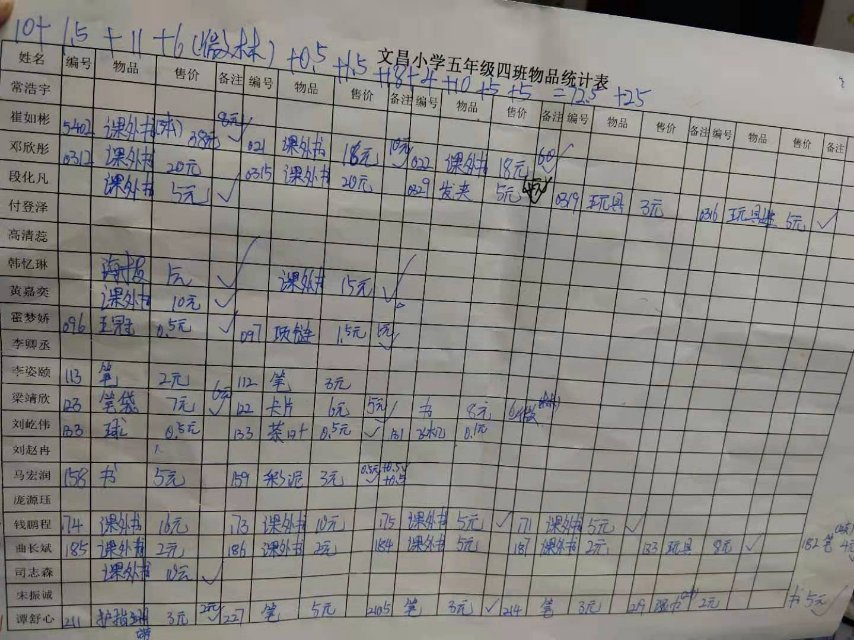 10+1.5+11+6(微林)+0.5+1.5+18+4+10+5+5=72.5+25
文昌小学五年级四班物品统计表
姓名 编号 物品 售价 备注 编号 物品 售价 备注 编号 物品 售价 备注 编号 物品 售价 备注 编号 物品 售价 备注
常浩宇
崔如彬 5402 课外书 38元 8元 021 课外书 18元 10元 022 课外书 18元
邓欣彤 0312 课外书 20元 0315 课外书 20元 0329 发夹 5元 0319 玩具 3元 0316 玩具 5元
段化凡 课外书 5元
付登泽
高清蕊
韩忆琳 海报 1元 课外书 15元
黄嘉奕 课外书 10元
霍梦娇 096 王冠 0.5元 097 项链 1.5元 1元
李卿丞
李姿颐 113 笔 2元 112 笔 3元
梁靖欣 123 笔袋 7元 6元 122 卡片 6元 5元 书 8元
刘屹伟 133 球 0.5元 133 茶叶 0.5元 131 0.1元
刘赵冉
马宏润 158 书 5元 159 彩泥 3元 0.5元+0.5+0.5
庞源珏
钱鹏程 174 课外书 16元 173 课外书 10元 175 课外书 5元 171 课外书 5元
曲长斌 185 课外书 2元 186 课外书 2元 184 课外书 5元 187 课外书 2元 183 玩具 8元 182 笔
司志森 课外书 10元
宋振诚
谭舒心 211 护指 3元 2元 227 笔 5元 2105 笔 3元 214 笔 3元 219 2元 书 5元